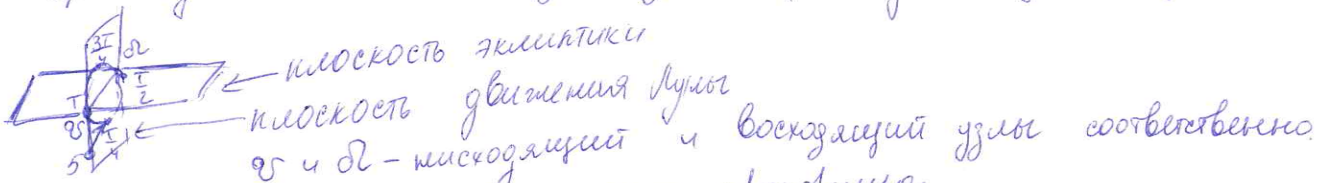 плоскость эклиптики
плоскость движения Луны
☋ и ☊ – нисходящий и восходящий узлы соответственно.